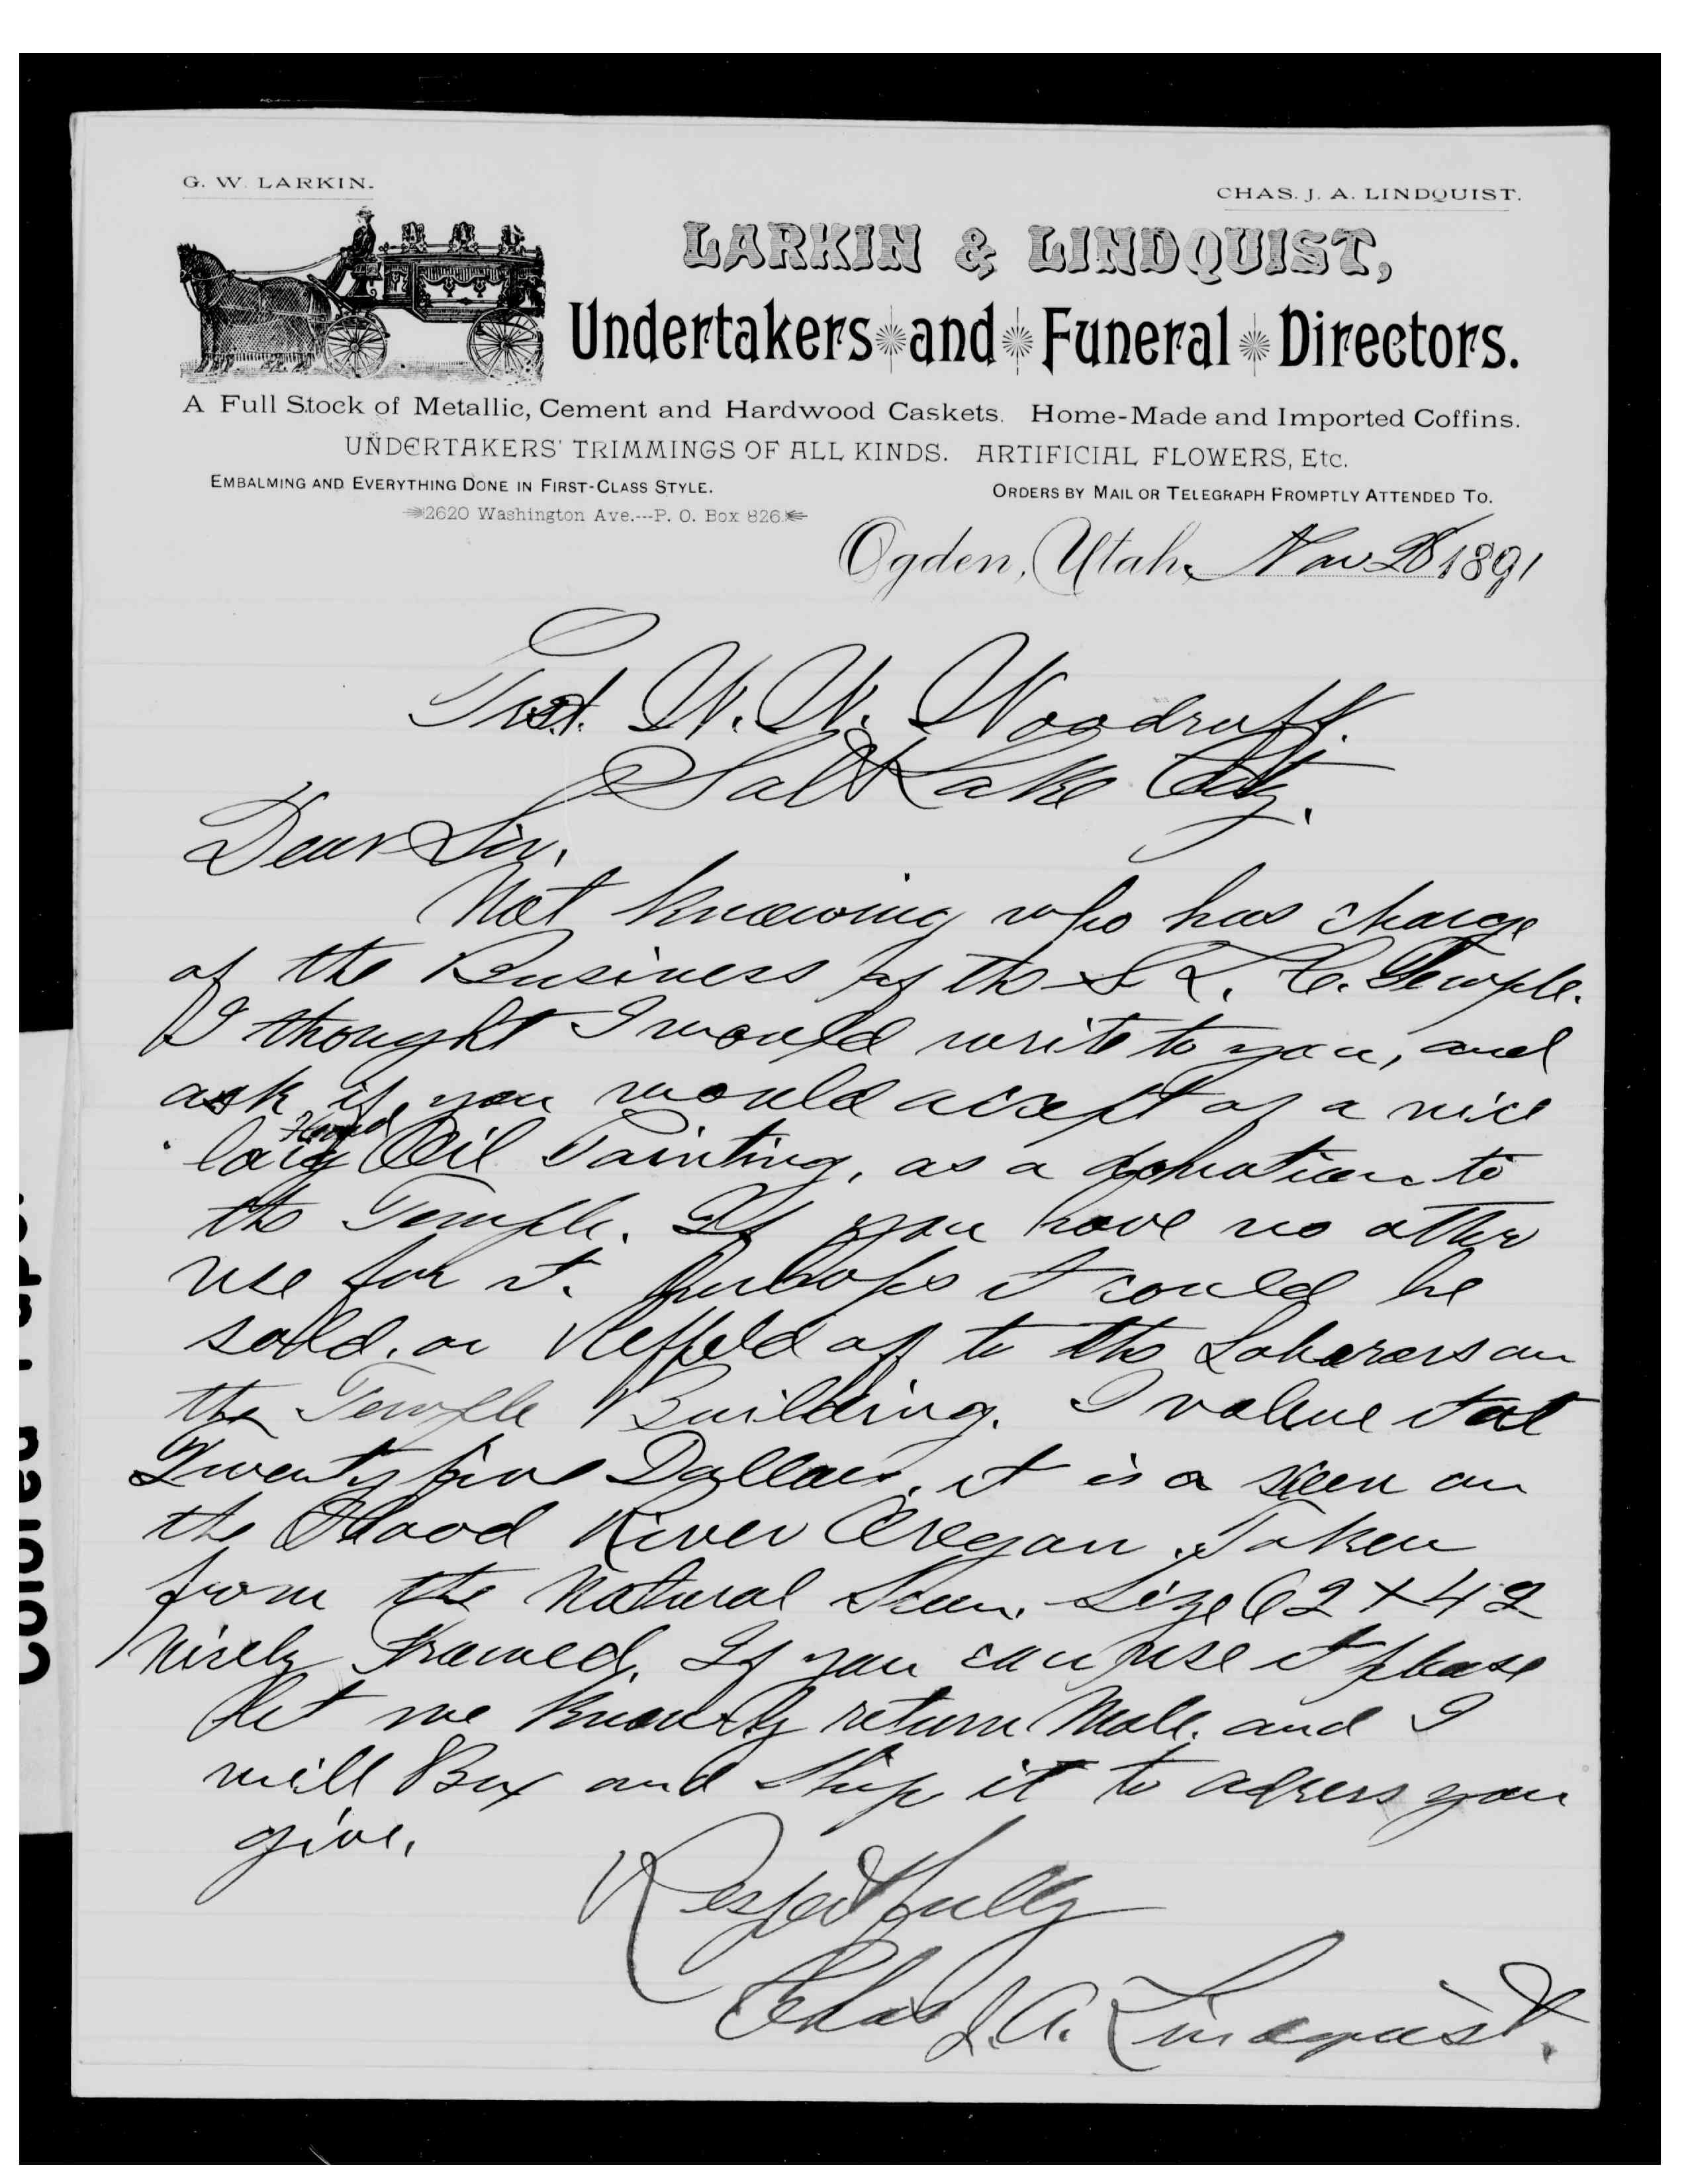 G. W. LARKIN.
CHAS. J. A. LINDQUIST.
LARKIN & LINDQUIST,
Undertakers and Funeral Directors.
A Full Stock of Metallic, Cement and Hardwood Caskets. Home-Made and Imported Coffins.
UNDERTAKERS' TRIMMINGS OF ALL KINDS. ARTIFICIAL FLOWERS, Etc.
EMBALMING AND EVERYTHING DONE IN FIRST-CLASS STYLE.
ORDERS BY MAIL OR TELEGRAPH PROMPTLY ATTENDED TO.
2620 Washington Ave.---P. O. Box 826.
Ogden, Utah, Nov 1891
Prest. W. W. Woodruff.
Salt Lake City.
Dear Sir,
Not knowing who has charge
of the Business of the S. L. C. Temple.
I thought I would write to you, and
ask if you would acsept of a nice
Hand
larg Oil Painting, as a donation to
the Temple. If you have no other
use for it. Purhaps it could be
sold, or Reffeld of to the Laborers on
the Temple Building. I value it at
Twenty five Dollars, it is a seen on
the Hood River Oregon. Taken
from the Natural Seen. Size 62 x 42
Nisely Framed. If you can use it please
let me know by return Male. and I
will Box and Ship it to adress you
give.
Respectfully
Chas J. A. Lindquist.
Colored Paper